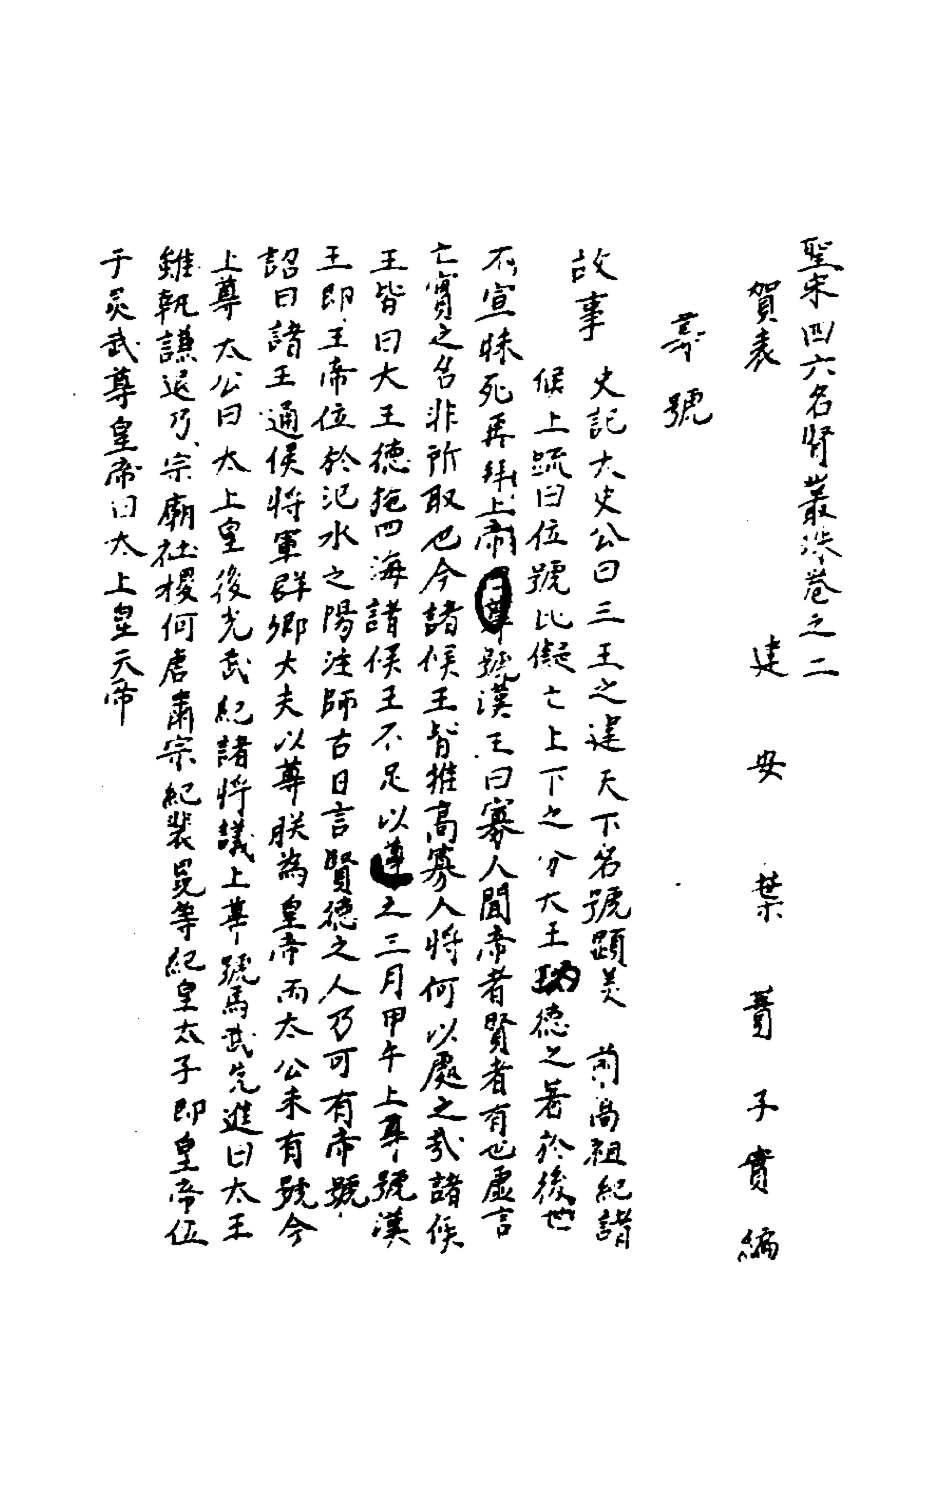 聖宋四六名賢叢珠卷之二
賀表　建安葉蕡子實編
尊號
故事　史記太史公曰三王之建天下名號顕美　前高祖紀諸
侯上疏曰位號比儗亡上下之分大王功德之著於後世
不宣昧死再拜上帝尊號漢王曰寡人聞帝者賢者有也虛言
亡實之名非所取也今諸侯王皆推高寡人將何以處之哉諸侯
王皆曰大王德施四海諸侯王不足以尊之三月甲午上尊號漢
王即王帝位於汜水之陽注師古曰言賢德之人乃可有帝號
詔曰諸王通侯將軍群卿大夫以尊朕為皇帝而太公未有號今
上尊太公曰太上皇後光武紀諸將議上尊號馬武先進曰大王
雖執謙退乃宗廟社稷何唐肅宗紀裴冕等紀皇太子即皇帝位
于灵武尊皇帝曰太上皇天帝